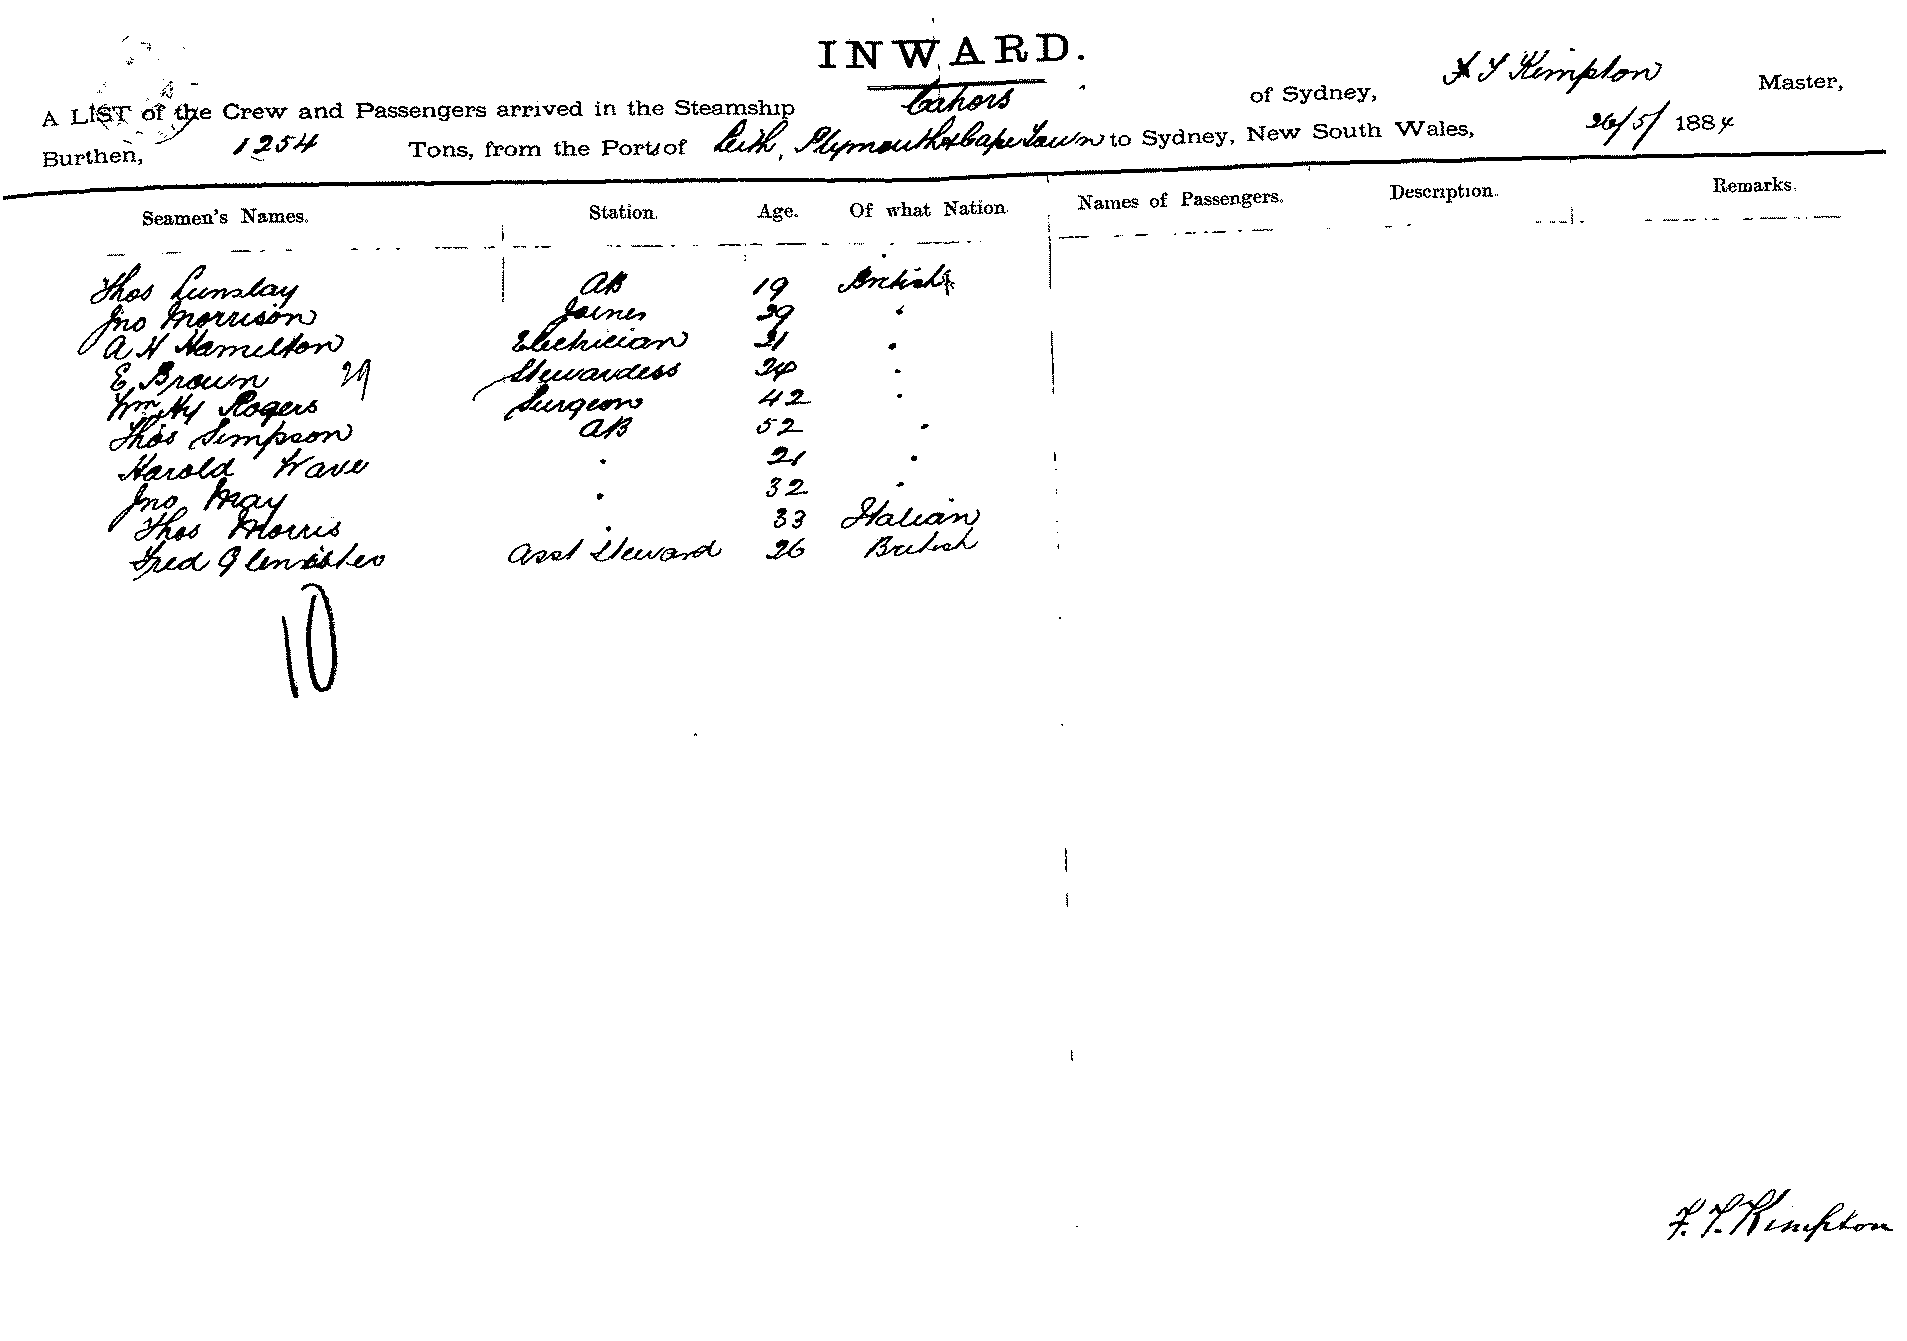 INWARD.
A LIST of the Crew and Passengers arrived in the Steamship Cahors of Sydney, F T Kimpton Master,
Burthen, 1254 Tons, from the Port of Leith, Plymouth & Cape Town to Sydney, New South Wales, 26/5/ 1884
Seamen's Names. Station. Age. Of what Nation. Names of Passengers. Description. Remarks.
Thos AB 19 British
Jno Morrison Joiner 29 "
A H Hamilton Electrician 21 "
E Brown 29 Stewardess 24 "
Wm Hy Rogers Surgeon 42 "
Thos Simpson AB 52 "
Harold Wave " 21 "
Jno May " 32 "
Thos Morris " 33 Italian
Fred Glenister Asst Steward 26 British
10
F. T. Kimpton